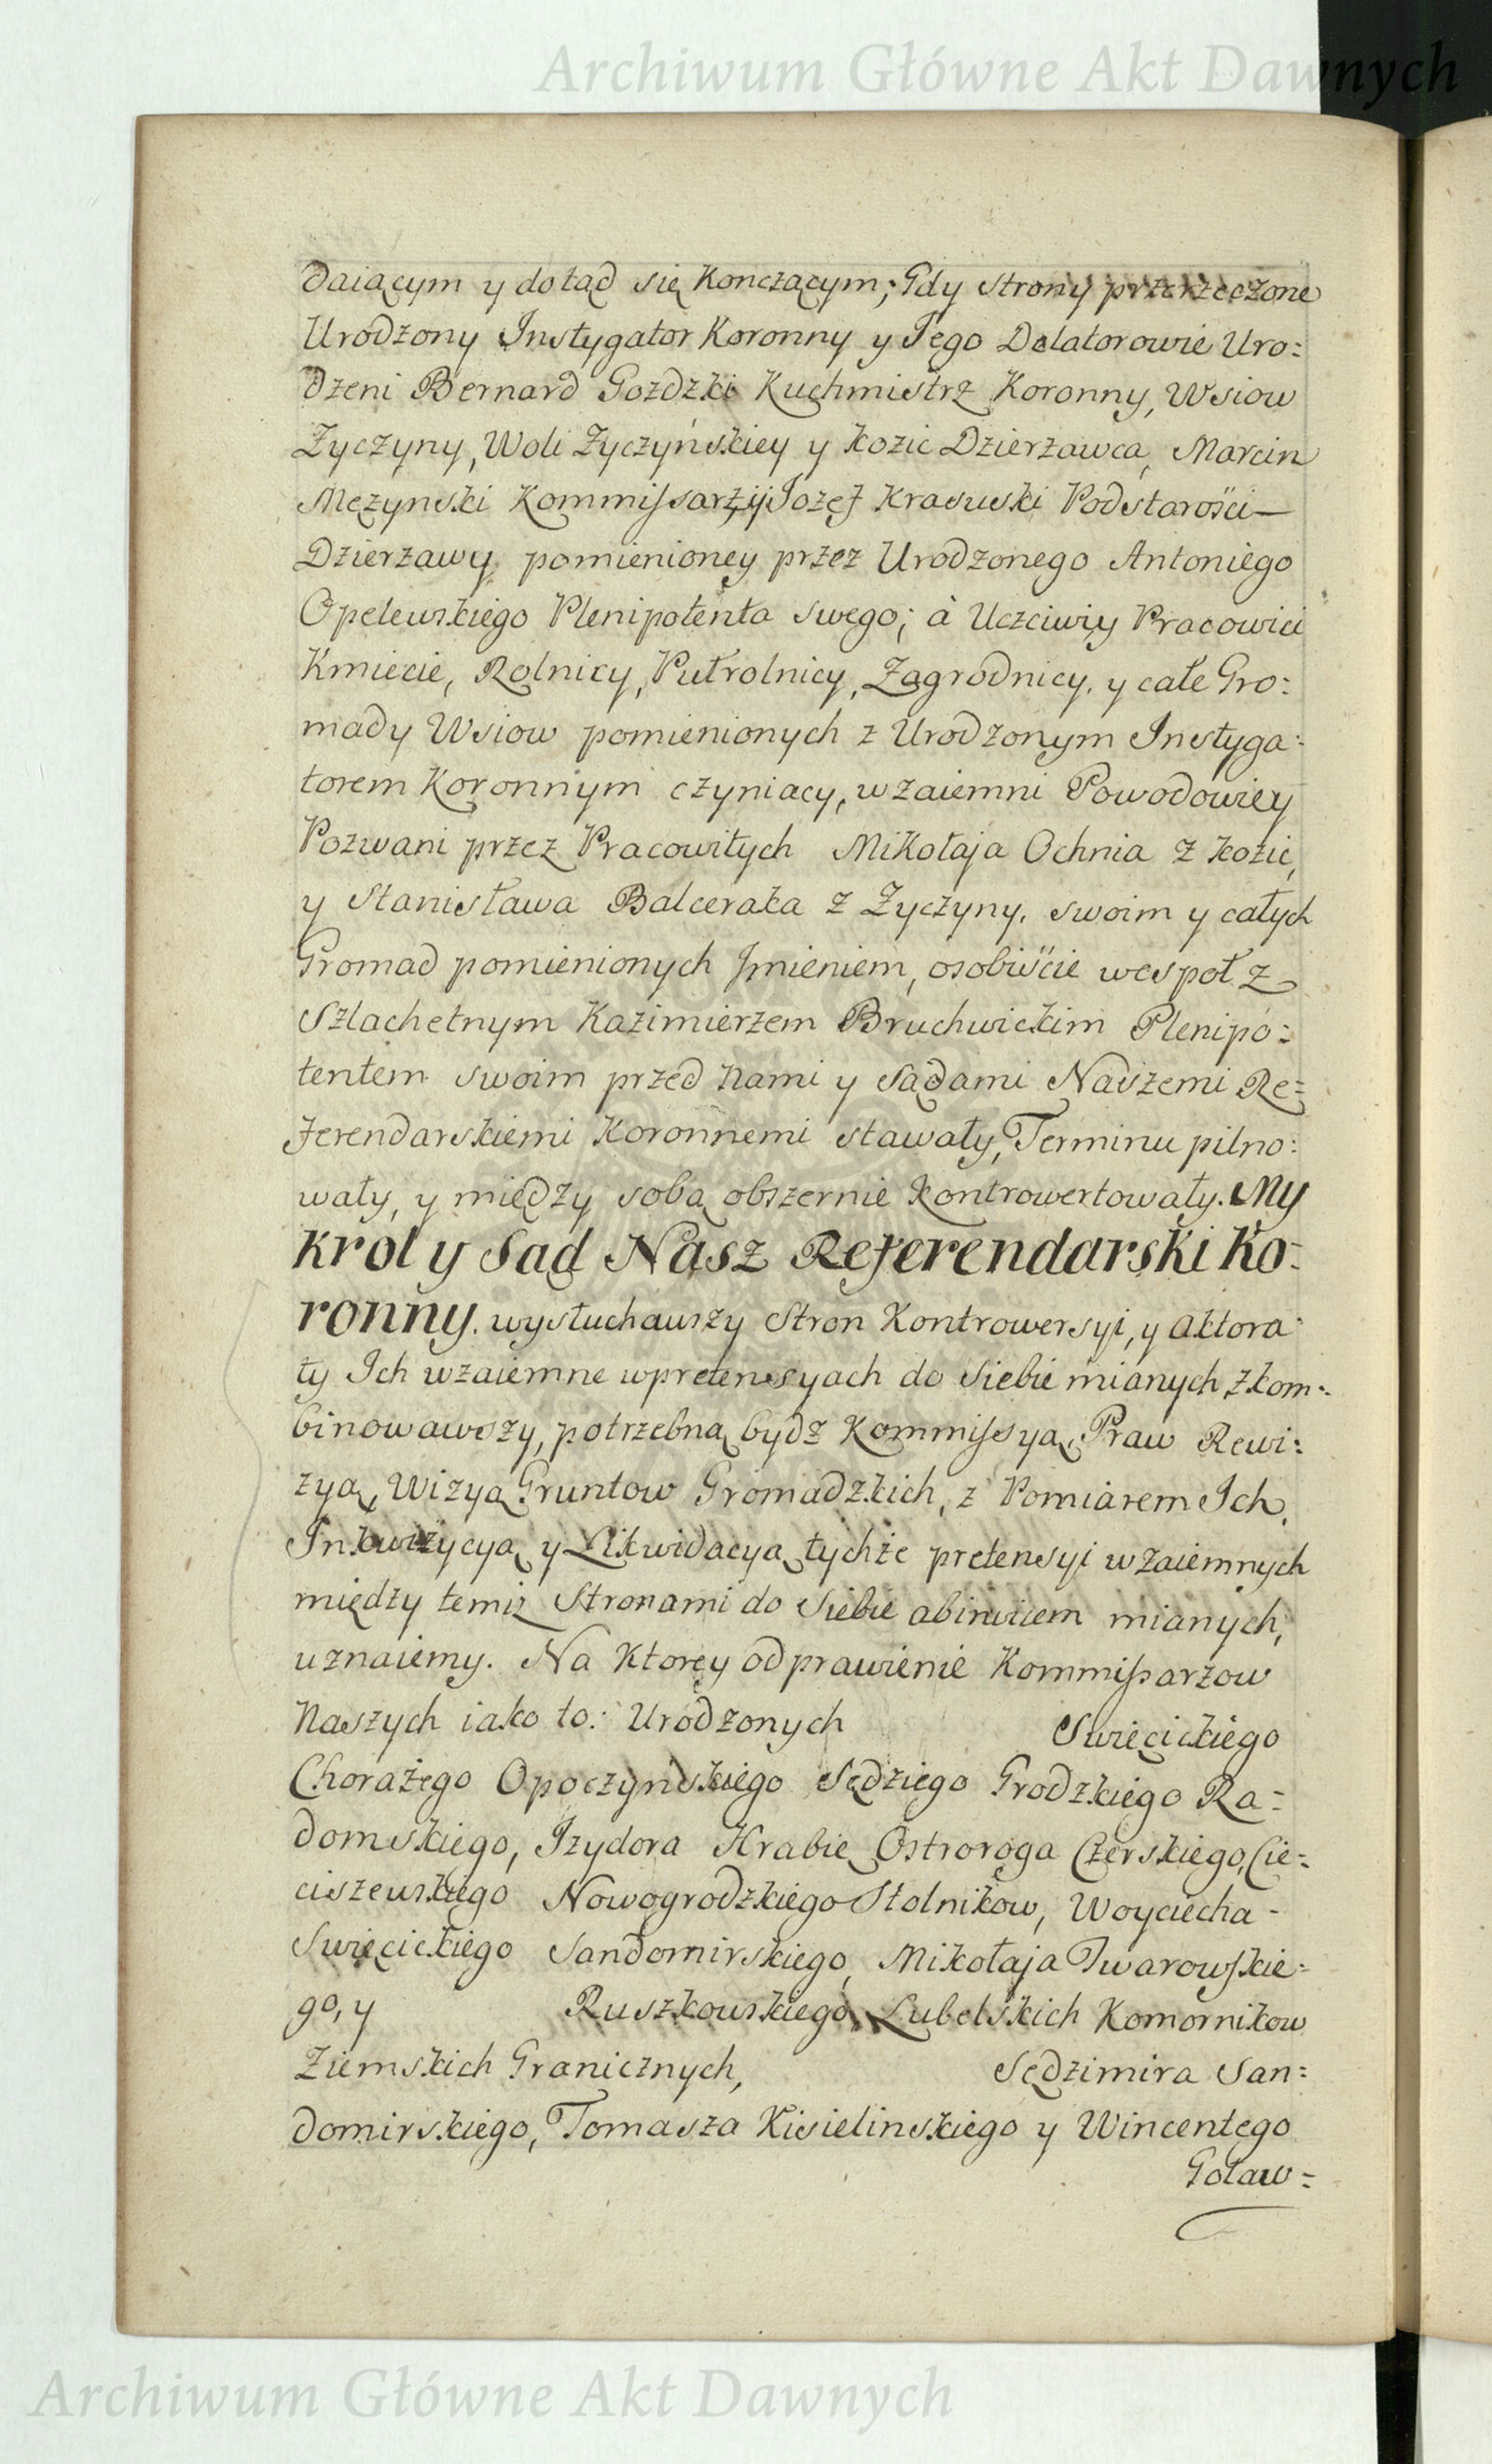 Archiwum Główne Akt Dawnych
daiącym y dotąd się Konczącym; Gdy Strony przerzeczone
Urodzony Instygator Koronny y Jego Delatorowie Uro:
dzeni Bernard Gozdzki Kuchmistrz Koronny, Wsiow
Zyczyny, Woli Zyczyńskiey y Kozic Dzierzawca, Marcin
Męzynski Kommissarz, y Jozef Krasuski Podstarości
Dzierzawy pomienioney przez Urodzonego Antoniego
Opelewskiego Plenipotenta swego; à Uczciwi y Pracowici
Kmiecie, Rolnicy, Pułrolnicy, Zagrodnicy, y całe Gro:
mady Wsiow pomienionych z Urodzonym Instyga:
torem Koronnym czyniacy, wzaiemni Powodowie y
Pozwani przez Pracowitych Mikołaja Ochnia z Kozic,
y Stanisława Balceraka z Zyczyny, swoim y całych
Gromad pomienionych Jmieniem, osobiście wespoł z
Szlachetnym Kazimierzem Bruchwickim Plenipo:
tentem swoim przed Nami y Sądami Naszemi Re:
ferendarskiemi Koronnemi stawały, Terminu pilno:
wały, y między sobą obszernie kontrowertowały. My
Krol y Sąd Nasz Referendarski Ko:
ronny, wysłuchawszy Stron Kontrowersyi, y Aktora:
ty Ich wzaiemne w pretensyach do siebie mianych, zkom:
binowawszy, potrzebną bydz Kommissyą, Praw Rewi:
zyą, Wizyą Gruntow Gromadzkich, z Pomiarem Ich,
Inkwizycyą y Likwidacyą tychże pretensyi wzaiemnych
między temiz Stronami do siebie abinvicem mianych,
uznaiemy. Na ktorey odprawienie Kommissarzow
Naszych iako to: Urodzonych Swięcickiego
Chorążego Opoczynskiego Sędziego Grodzkiego Ra:
domskiego, Izydora Hrabię Ostroroga Czerskiego, Cie:
ciszewskiego Nowogrodzkiego Stolnikow, Woyciecha
Swięcickiego Sandomirskiego, Mikołaja Twarowskie:
go, y Ruszkowskiego Lubelskich Komornikow
Ziemskich Granicznych, Sędzimira San:
domirskiego, Tomasza Kisielinskiego y Wincentego
Goław:
Archiwum Główne Akt Dawnych